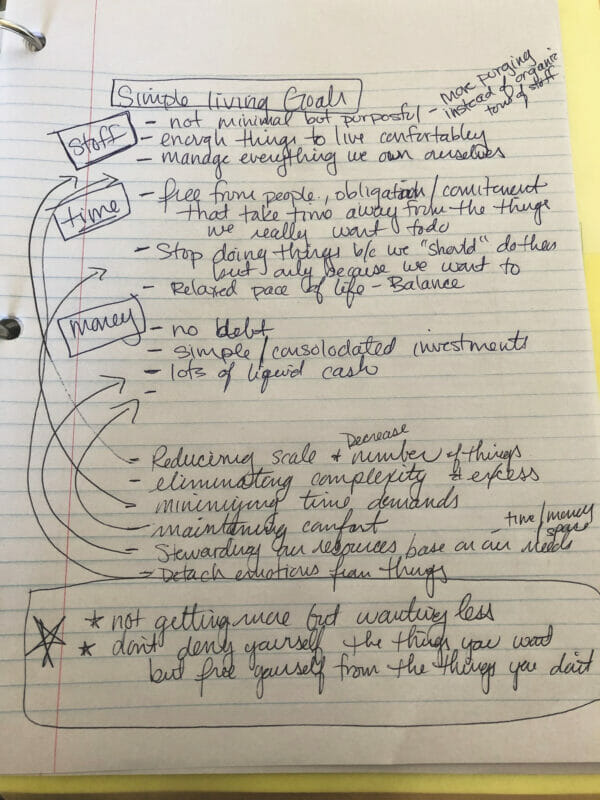 Simple living Goals
Stuff
- not minimal but purposful - More purging
instead of organic
tons of stuff
- enough things to live confortabley
- manage everything we own ourselves
time
- free from people, obligation/comitment
that take time away from the things
we really want todo
- Stop doing things b/c we "should" do them
but only because we want to
- Relaxed pace of life - Balance
money
- no debt
- simple/consolodated investments
- lots of liquid cash
-
Decrease
- Reducing scale & number of things
- eliminating complexity & excess
- minimizing time demands
- maintaining comfort
- time/money
space
- Stewarding our resources base on our needs
- Detach emotions from things
* not getting more but wanting less
* don't deny yourself the things you want
but free yourself from the things you don't